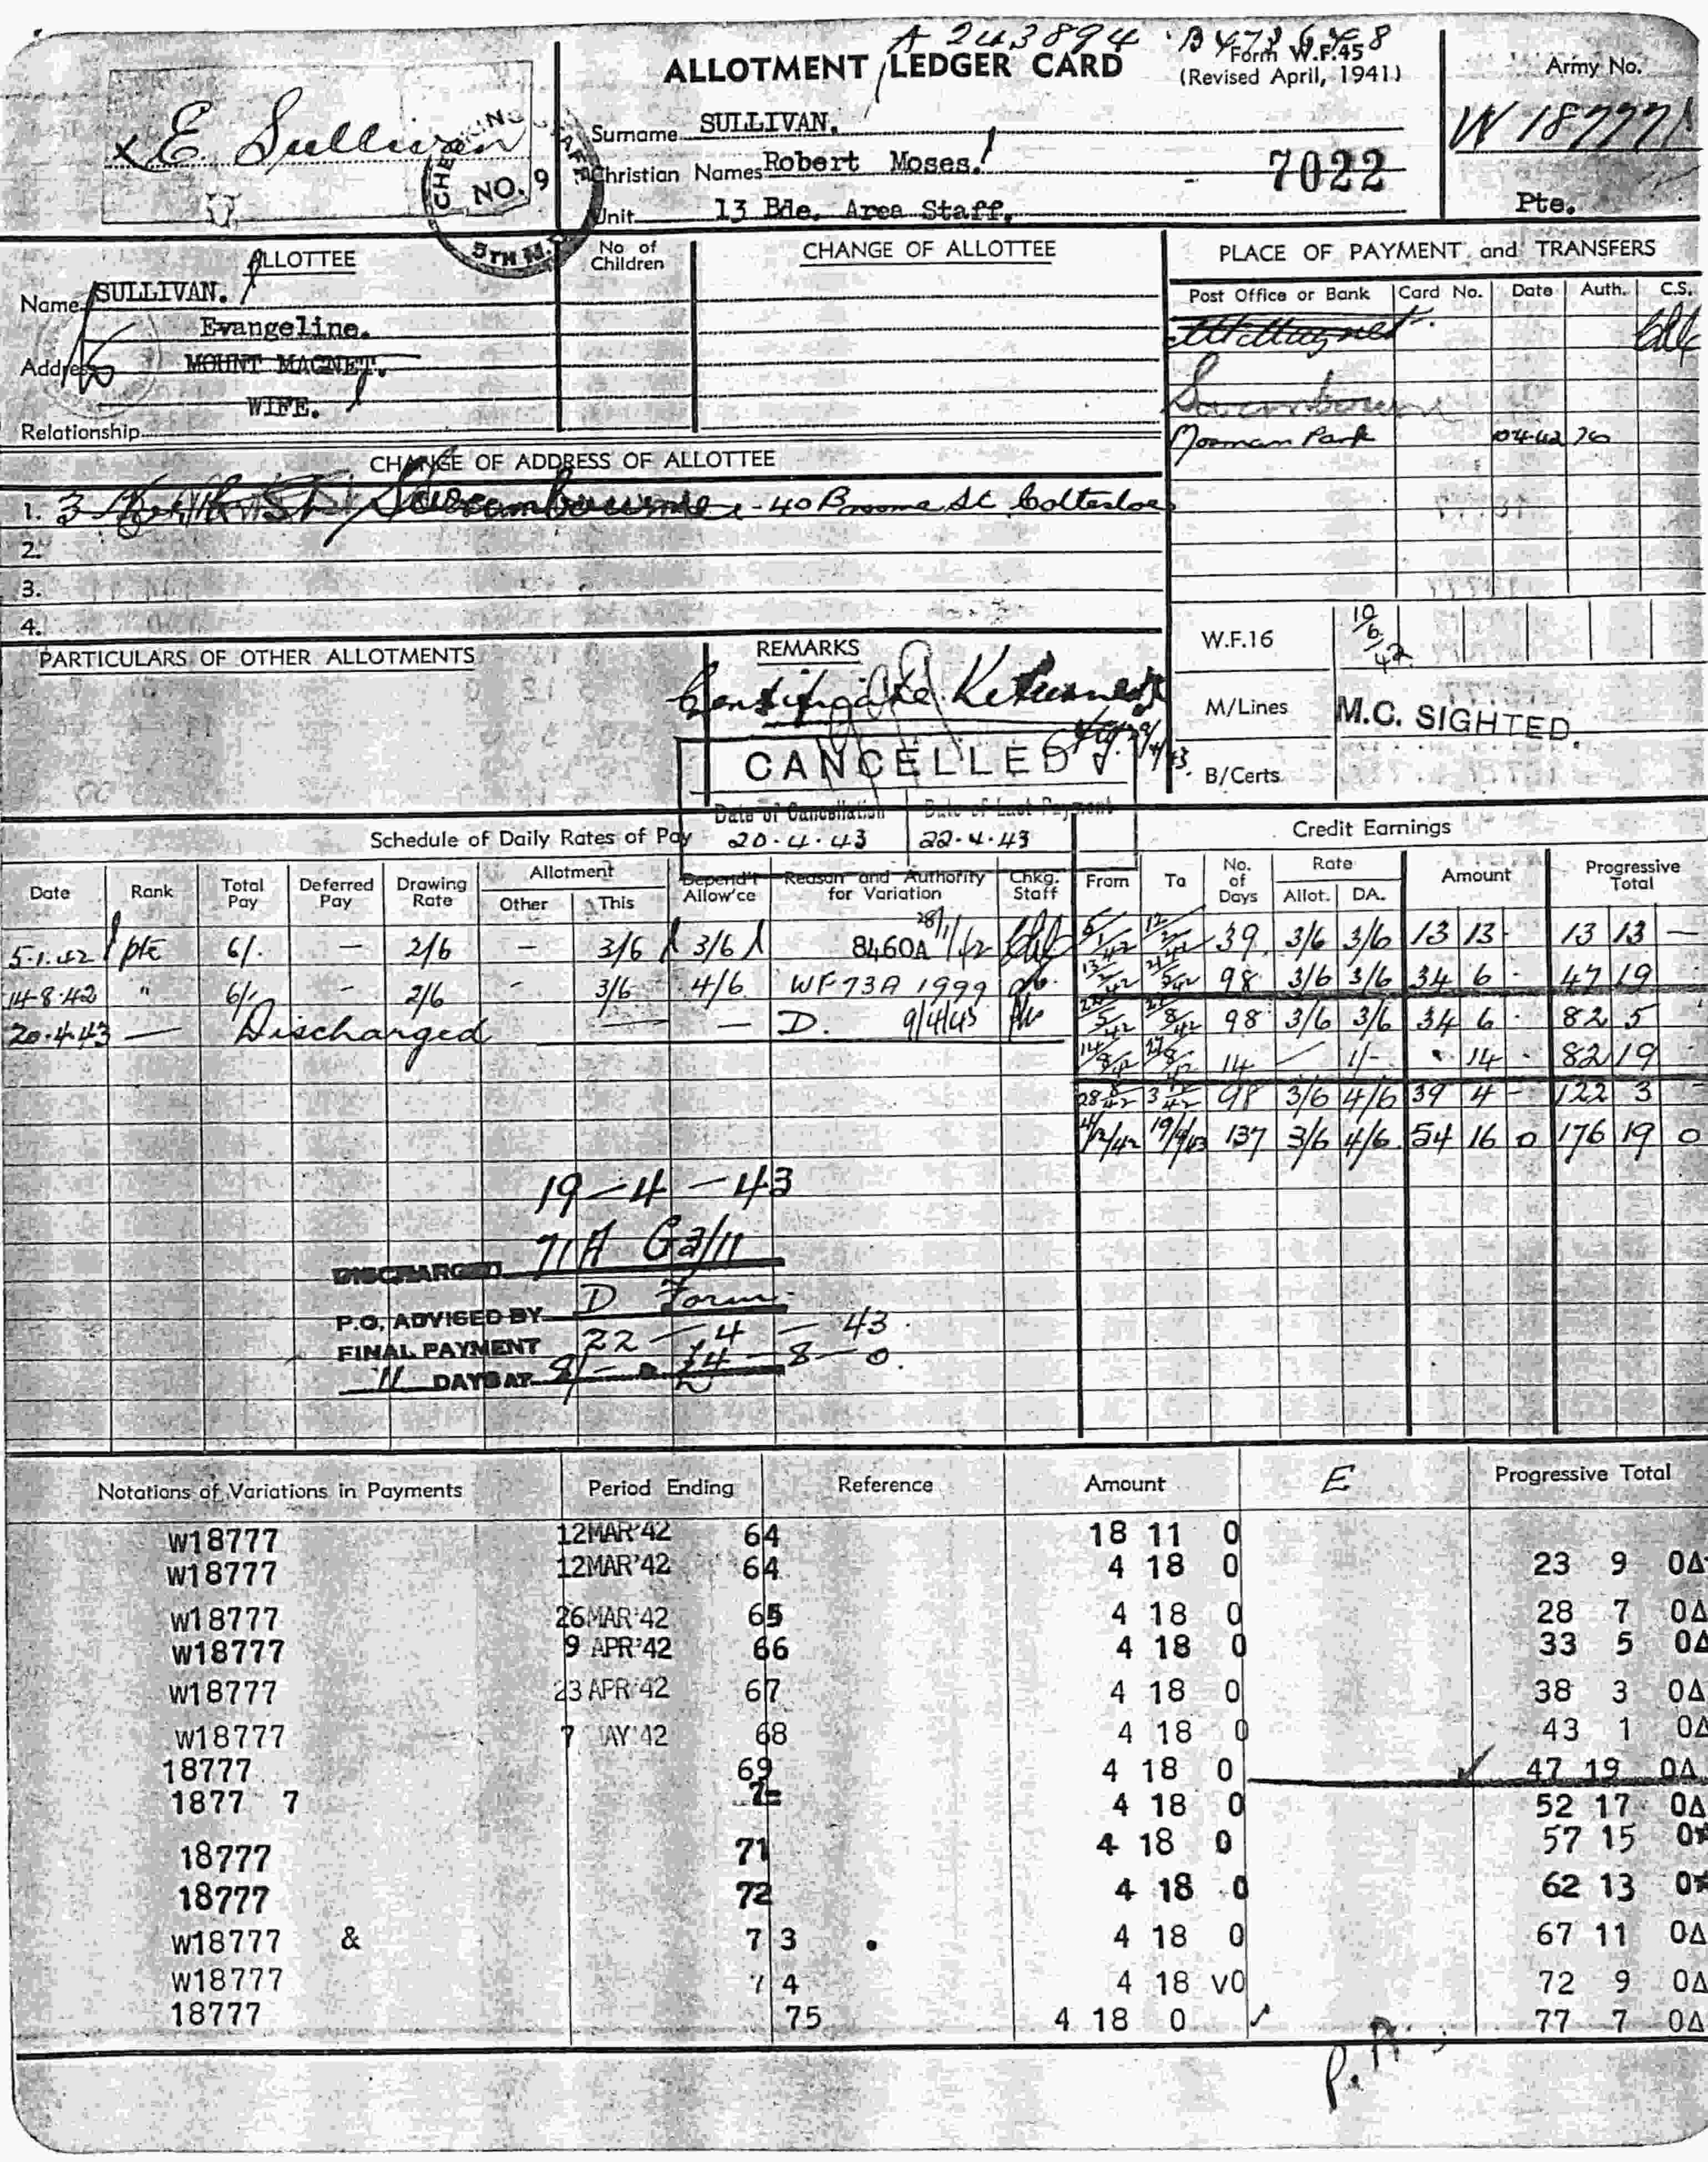 A 243894
ALLOTMENT LEDGER CARD
Form W.F.45
(Revised April, 1941)
Army No.
W 18777
Pte.
x E. Sullivan
NO. 9
5TH M.D.
Surname SULLIVAN.
Christian Names Robert Moses.
7022
Unit 13 Bde. Area Staff.
ALLOTTEE
Name SULLIVAN.
Evangeline.
Address MOUNT MAGNET.
WIFE.
Relationship
No of Children
CHANGE OF ALLOTTEE
PLACE OF PAYMENT and TRANSFERS
Post Office or Bank Card No. Date Auth. C.S.
Mt Magnet
Swanbourne
Mosman Park
CHANGE OF ADDRESS OF ALLOTTEE
1. 3 St Swanbourne - 40 Broome St Cottesloe
2.
3.
4.
PARTICULARS OF OTHER ALLOTMENTS
REMARKS
Certificate Returned
CANCELLED
Date of Cancellation Date of Last Payment
20.4.43 22.4.43
W.F.16 19/6/42
M/Lines M.C. SIGHTED.
B/Certs
Schedule of Daily Rates of Pay
Credit Earnings
Date Rank Total Pay Deferred Pay Drawing Rate Allotment Other This Depend't Allow'ce Reason and Authority for Variation Chkg. Staff From To No. of Days Rate Allot. DA. Amount Progressive Total
5.1.42 pte 6/. — 2/6 — 3/6 3/6 8460A 28/1/42 5/1/42 12/2/42 39 3/6 3/6 13 13 - 13 13 —
14-8-42 " 6/. - 2/6 - 3/6 4/6 WF 73A 1999 13/2/42 21/5/42 98 3/6 3/6 34 6 - 47 19
20.4.43 — Discharged — — D. 22/5/42 27/8/42 98 3/6 3/6 34 6 - 82 5
14/8/42 27/8/42 14 — 1/- . 14 . 82 19
28 8/42 3 12/42 98 3/6 4/6 39 4 - 122 3
4/12/42 19/4/43 137 3/6 4/6 54 16 0 176 19 0
19 - 4 - 43
DISCHARGED 71A G3/11
P.O. ADVISED BY D Form
FINAL PAYMENT 22 - 4 - 43
11 DAYS AT 8/- = £4 - 8 - 0.
Notations of Variations in Payments Period Ending Reference Amount E Progressive Total
W18777 12MAR'42 64 18 11 0
W18777 12MAR'42 64 4 18 0 23 9 0Δ
W18777 26MAR'42 65 4 18 0 28 7 0Δ
W18777 9 APR'42 66 4 18 0 33 5 0Δ
W18777 23 APR'42 67 4 18 0 38 3 0Δ
W18777 7 AY'42 68 4 18 0 43 1 0Δ
18777 69 4 18 0 47 19 0Δ
1877 7 4 18 0 52 17 0Δ
18777 71 4 18 0 57 15 0*
18777 72 4 18 0 62 13 0*
W18777 & 7 3 . 4 18 0 67 11 0Δ
W18777 7 4 4 18 v0 72 9 0Δ
18777 75 4 18 0 77 7 0Δ